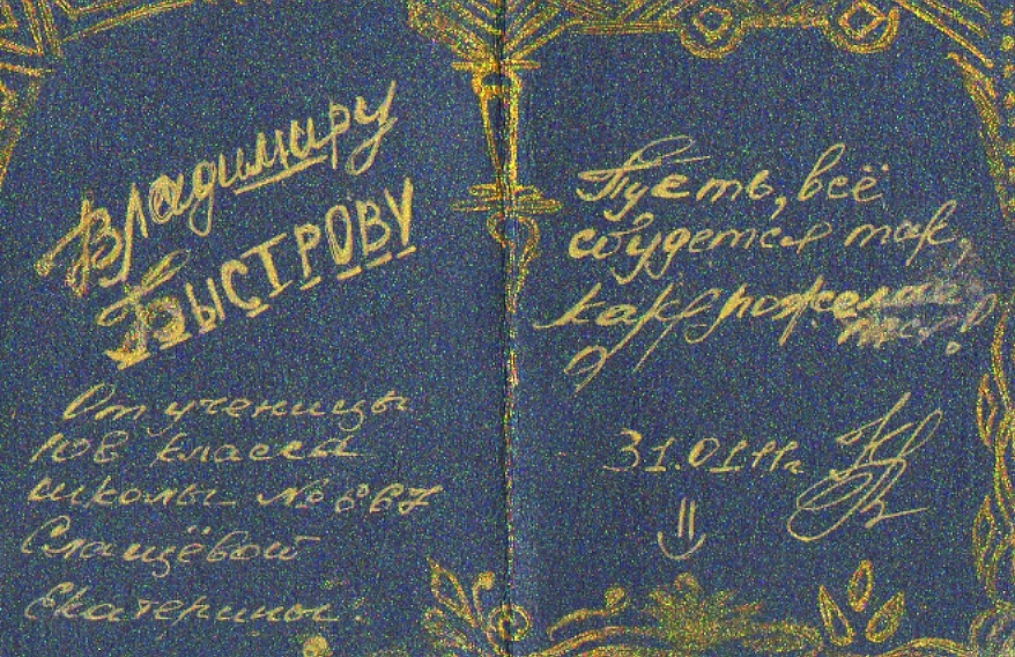 Владимиру
БЫСТРОВУ
От ученицы
10в класса
школы № 667
Слащёвой
Екатерины.
Пусть, всё
сбудется так,
как
31.01.11г.